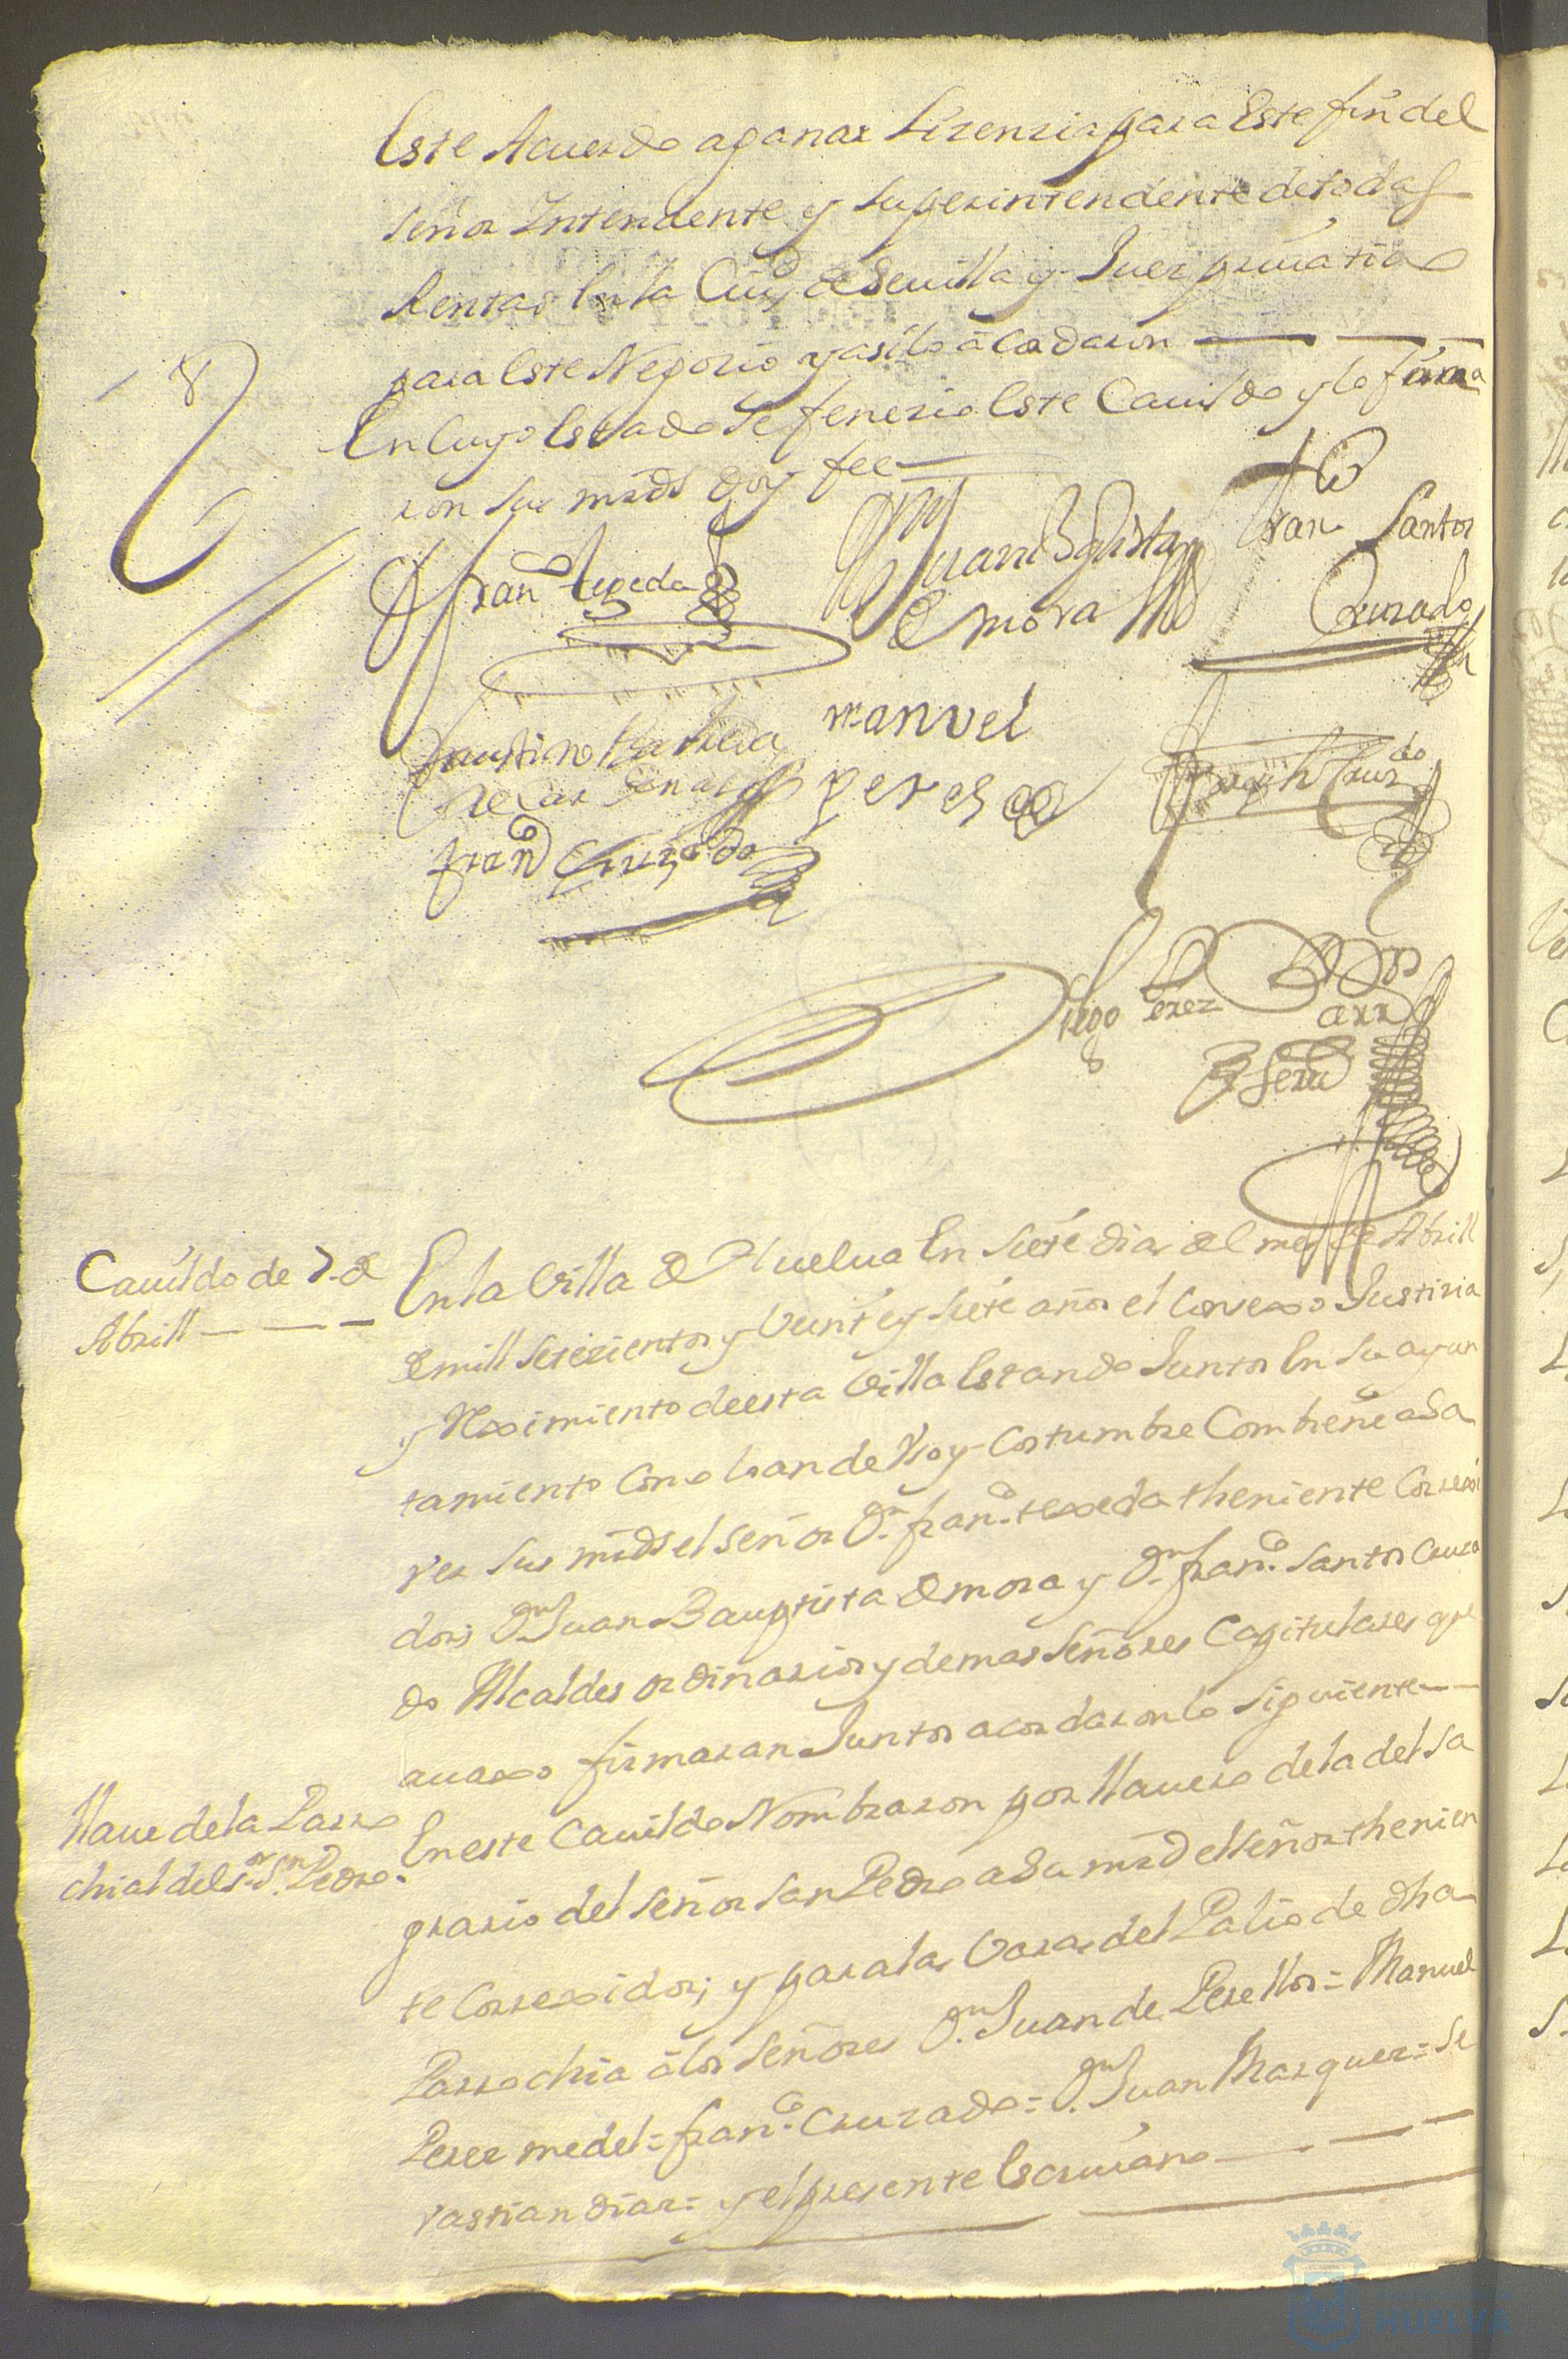 Este Acuerdo aganar Lizenzia para Este fin del
señor Yntendente y Superintendente de todas
Rentas En la Ciud de Sevilla y Juez priuatiuo
para Este Negozio y asilo acordaron
En Cuyo Estado Se fenezio Este Cauildo y lo firma
ron sus mrds doy fee
Dn franco texeda
Dn Juan Baptista
de mora
Dn
fran Santos
Cruzado
faustino Barreda
de Cardenas
manuel
peres
Joseph Cruzdo
franco Cruzado
Diego Perez
esno
Cauildo de 7 de
Abrill
En la Villa de Huelua En Siete dias del mes de Abrill
de mill setezientos y Veinte y siete años el Conzexo Justizia
y Reximiento de esta Villa Estando Juntos En Su ayun
tamiento Como lo an de Vso y Costumbre Combiene asa
ver sus mrds el señor Dn franco texeda theniente Correxi
dor; Dn Juan Bauptista de mora y Dn franco santos Cruza
do Alcaldes ordinarios y demas señores Capitulares que
auaxo firmaran Juntos acordaron lo siguiente
Llaue de la Parro
chial del sor Sn Pedro
En este Cauildo Nombraron por llauero de la del Sa
grario del señor San Pedro a Su mrd el señor thenien
te Correxidor; y para las Varas del Palio de dha
Parrochia a los señores Dn Juan de Perellos = Manuel
Perez medel = franco Cruzado = Dn Juan Marquez = Se
vastian diaz = y el presente Escriuano
HUELVA